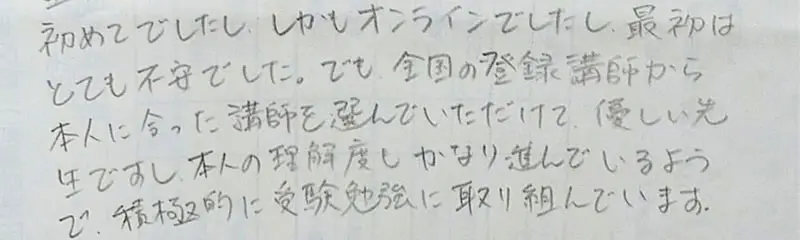 初めてでしたし、しかもオンラインでしたし、最初は
とても不安でした。でも、全国の登録講師から
本人に合った講師を選んでいただけて、優しい先
生ですし、本人の理解度もかなり進んでいるよう
で、積極的に受験勉強に取り組んでいます。